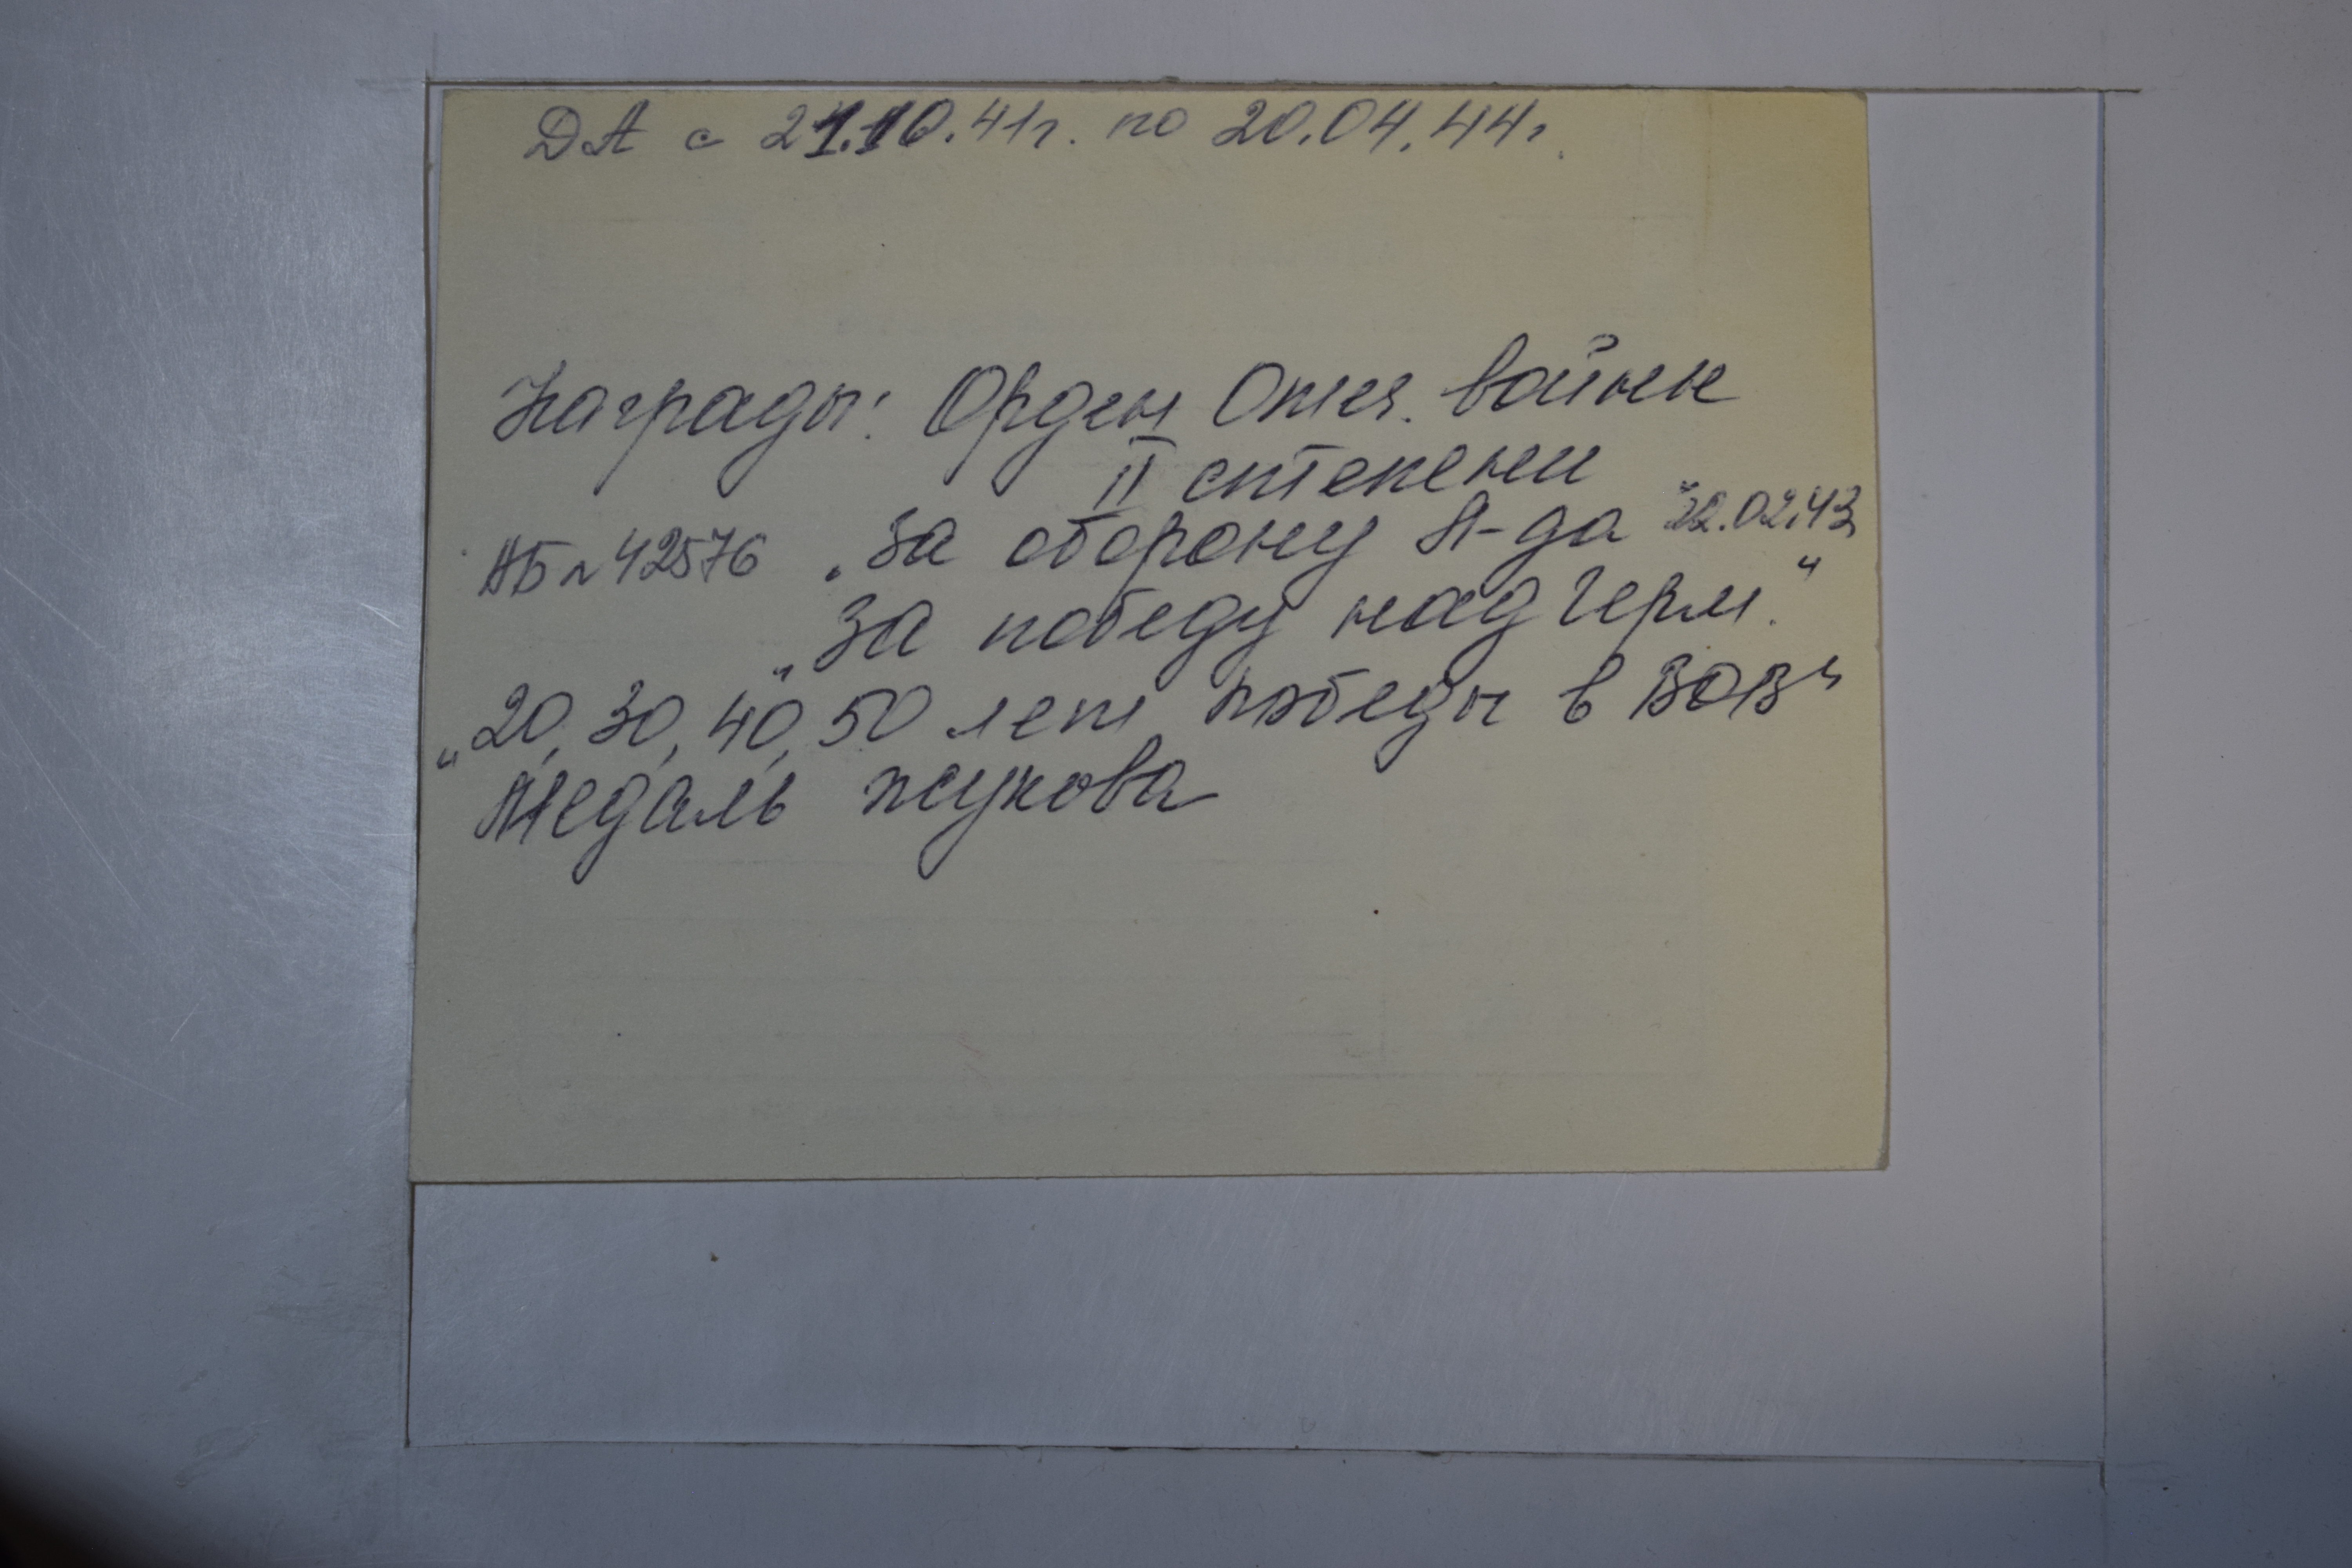 ДА с 21.10.41г. по 20.04.44г.
Награды: Орден Отеч. войны
II степени
АБ № 42576 „За оборону Л-да" 22.02.43
„За победу над Герм."
„20, 30, 40, 50 лет победы в ВОВ"
Медаль Жукова